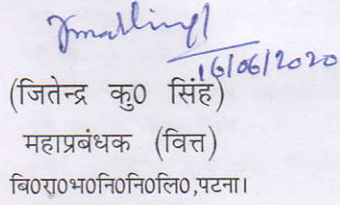 16/06/2020
(जितेन्द्र कु0 सिंह)
महाप्रबंधक (वित्त)
बि0रा0भ0नि0नि0लि0,पटना।